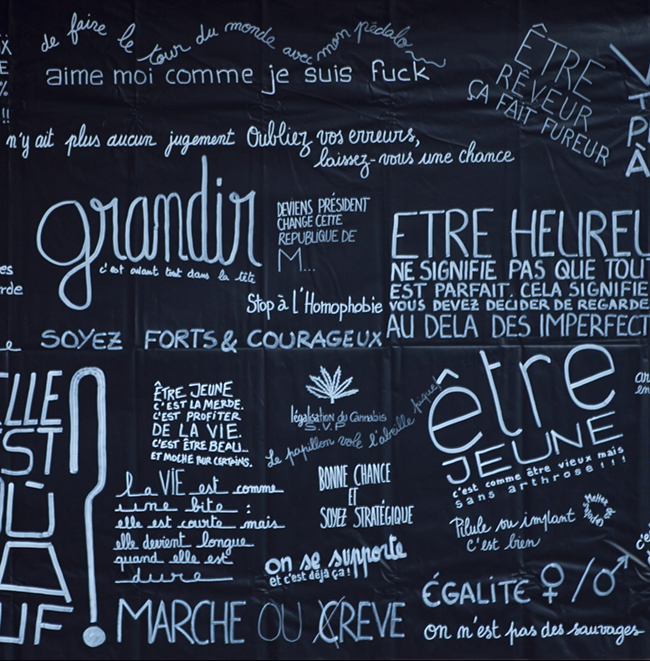 de faire le tour du monde avec mon pédalo
aime moi comme je suis fuck
ÊTRE
RÊVEUR
ÇA FAIT FUREUR
X
E
%
!!
n'y ait plus aucun jugement
Oubliez vos erreurs,
laissez-vous une chance
V
T
P
À
grandir
c'est avant tout dans la tête
DEVIENS PRÉSIDENT
CHANGE CETTE
REPUBLIQUE DE
M...
ETRE HEUREU
NE SIGNIFIE PAS QUE TOUT
EST PARFAIT. CELA SIGNIFIE
VOUS DEVEZ DECIDER DE REGARDE
AU DELA DES IMPERFECT
es
rde
Stop à l'Homophobie
SOYEZ FORTS & COURAGEUX
ELLE
ST
OÙ
LA
UF
?
ÊTRE JEUNE
C'EST LA MERDE.
C'EST PROFITER
DE LA VIE.
C'EST ÊTRE BEAU...
ET MOCHE POUR CERTAINS.
légalisation du Cannabis
S.V.P
Le papillon vole l'abeille pique
être
JEUNE
c'est comme être vieux mais
sans arthrose!!!
la VIE est comme
une bite :
elle est courte mais
elle devient longue
quand elle est
dure
BONNE CHANCE
ET
SOYEZ STRATÉGIQUE
Pilule ou implant
c'est bien
on se supporte
et c'est déjà ça!
MARCHE OU CREVE
ÉGALITÉ ♀/♂
on n'est pas des sauvages